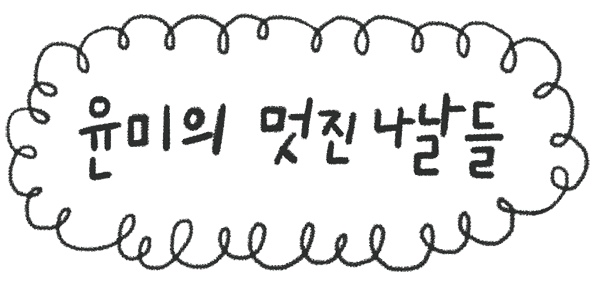 윤미의 멋진 나날들